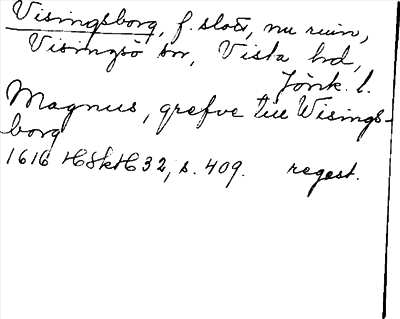 Visingsborg, f. slott, nu ruin,
Visingsö sn, Vista hd,
Jönk. l.
Magnus, grefve till Wisings-
borg
1616 HSkH 32, s. 409. regest.